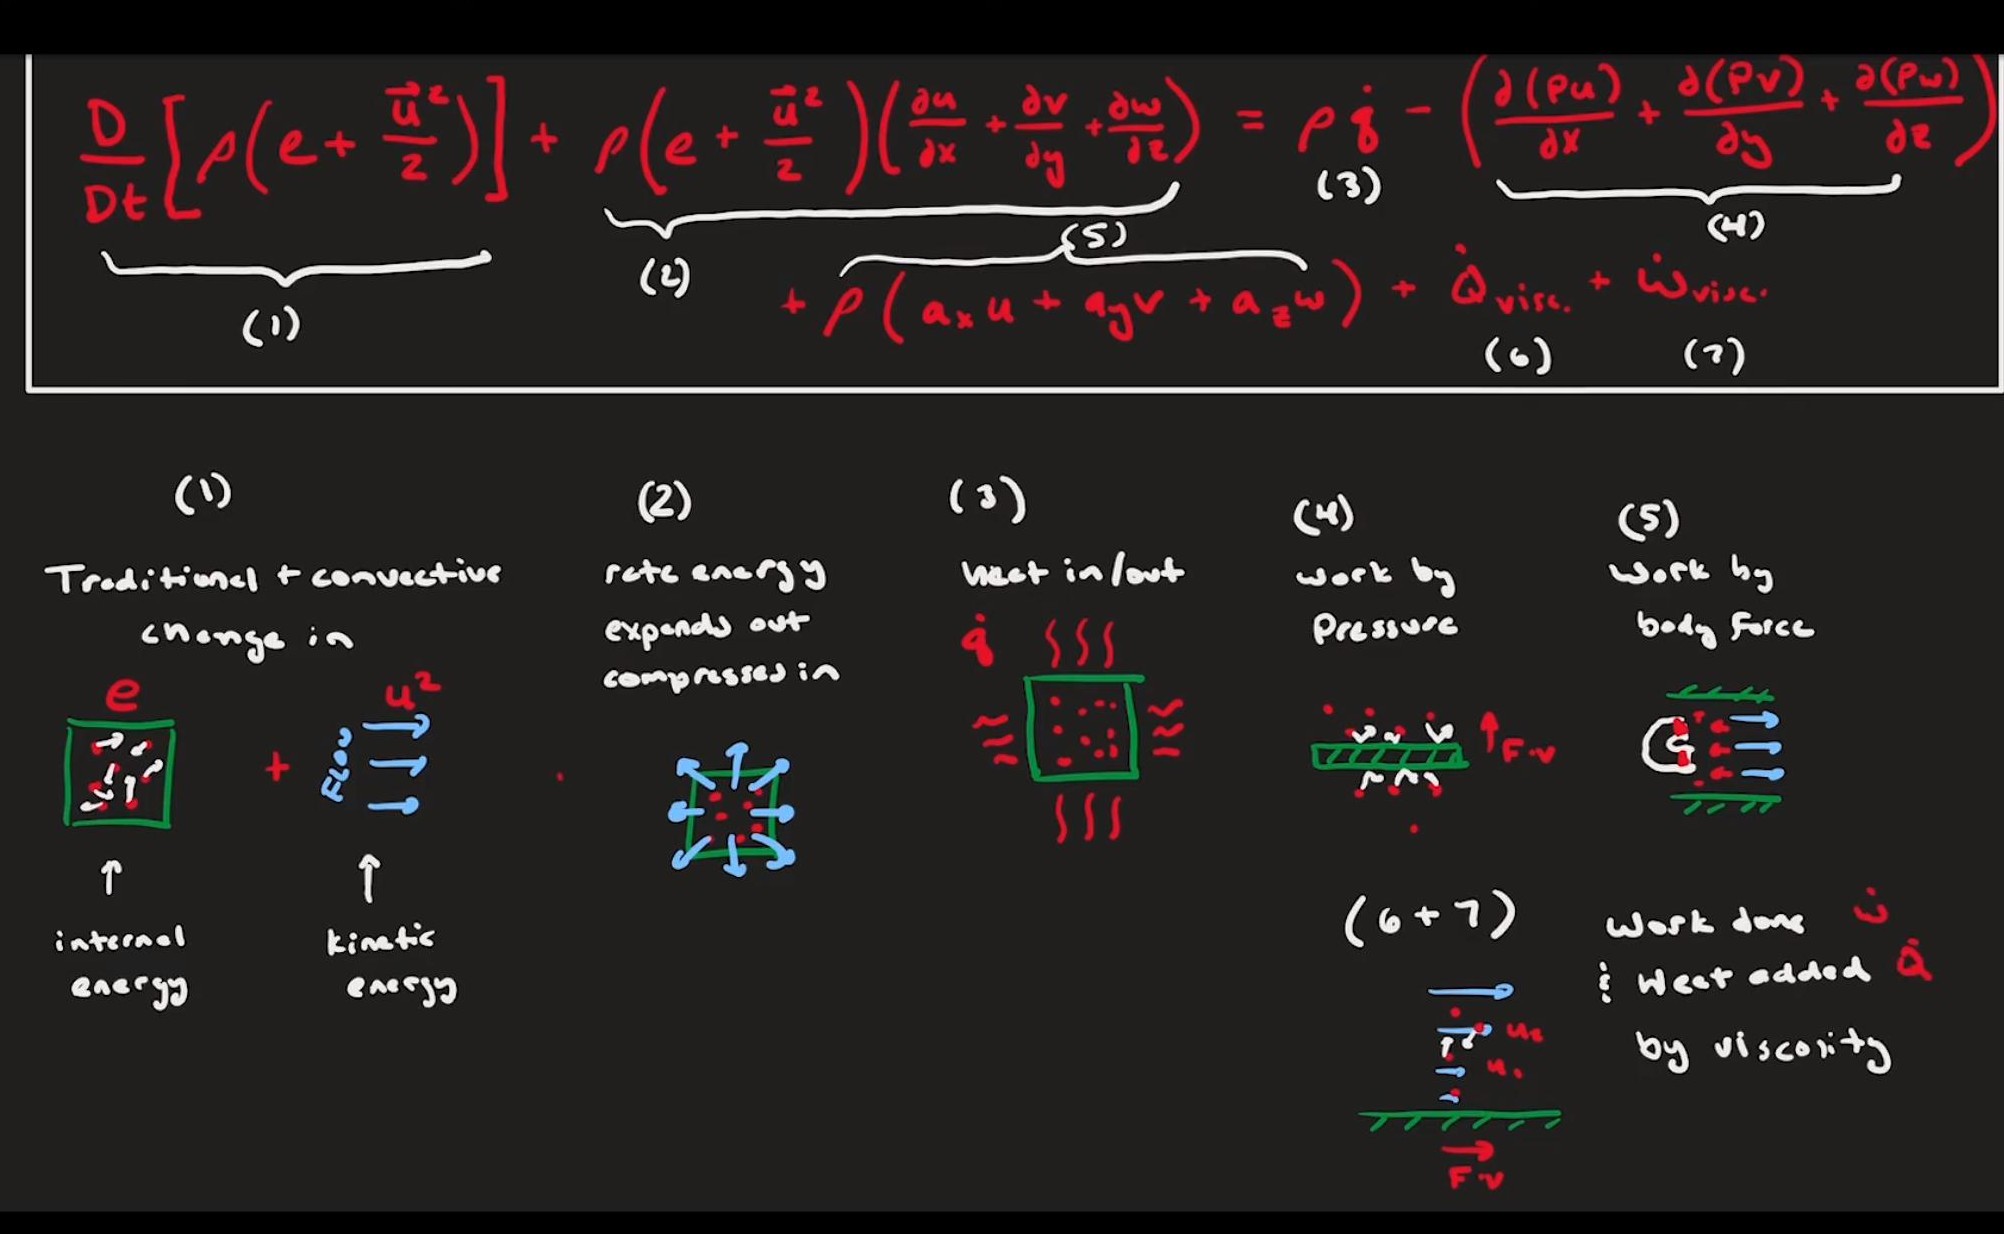 D/Dt [ρ(e + u⃗²/2)] + ρ(e + u⃗²/2)(∂u/∂x + ∂v/∂y + ∂w/∂z) = ρq̇ - (∂(pu)/∂x + ∂(pv)/∂y + ∂(pw)/∂z)
(1) (2) (3) (4)
(5)
+ ρ(aₓu + a_yv + a_zw) + Q̇visc. + ẇvisc.
(6) (7)
(1)
Traditional + convective
change in
e + u²
FLOW
internal
energy
kinetic
energy
(2)
rate energy
expands out
compressed in
(3)
heat in/out
q̇
(4)
work by
pressure
F·v
(5)
work by
body force
(6+7)
work done ẇ
& heat added Q̇
by viscosity
u₂
u₁
F·v